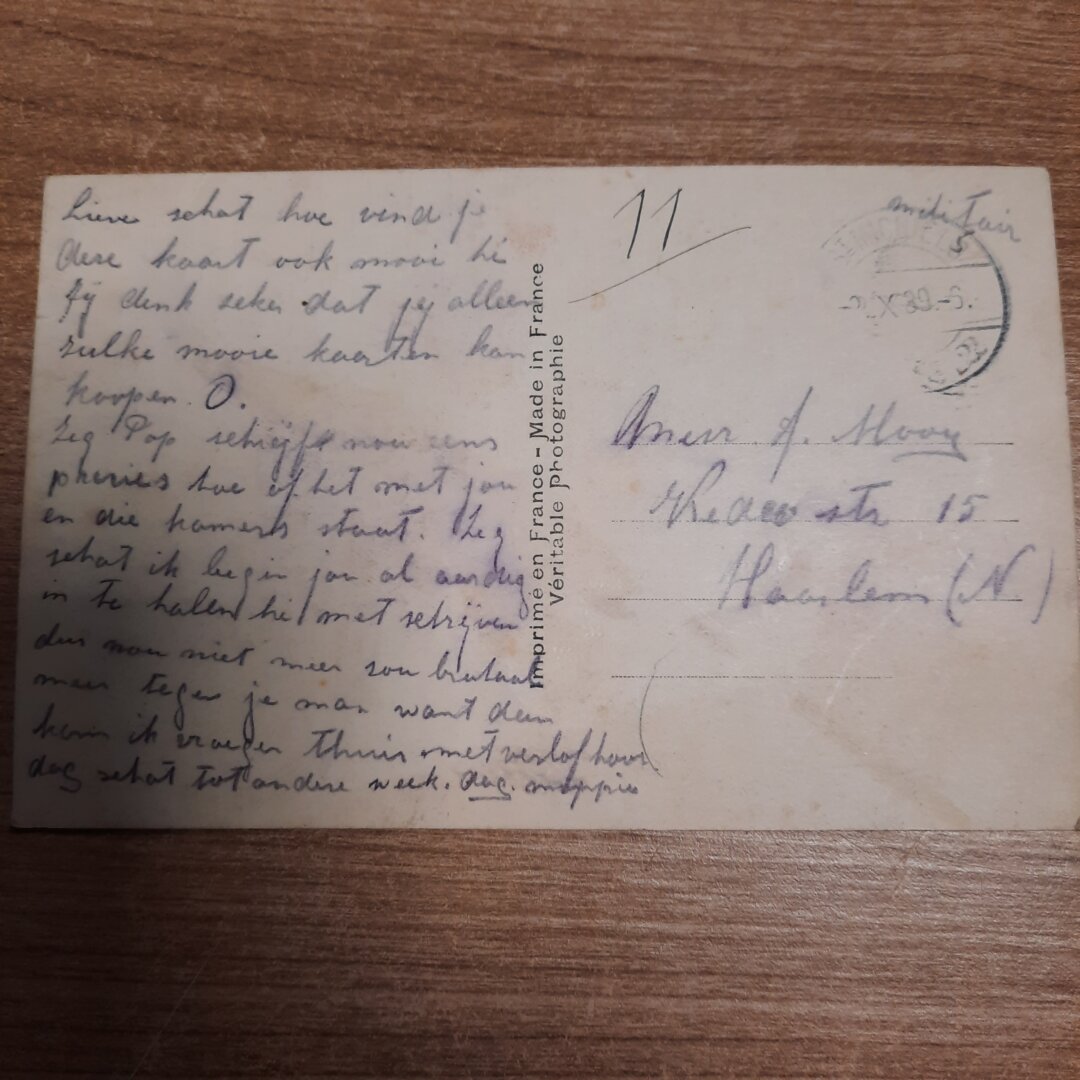 Lieve schat hoe vind je
deze kaart ook mooi hé
Jij denk zeker dat jij alleen
zulke mooie kaarten kan
koopen. O.
Zeg Pop schrijft nou eens
precies hoe of het met jou
en die kamers staat. Zeg
schat ik begin jou al aardig
in te halen hé met schrijven
dus nou niet meer zou brutaal
meer tegen je man want dan
kom ik vroeger thuis met verlof hoor
dag schat tot andere week. dag. moppie
Imprimé en France - Made in France
Véritable Photographie
11
militair
5
X 39.-6.
A. Mooy
str 15
Haarlem (N)